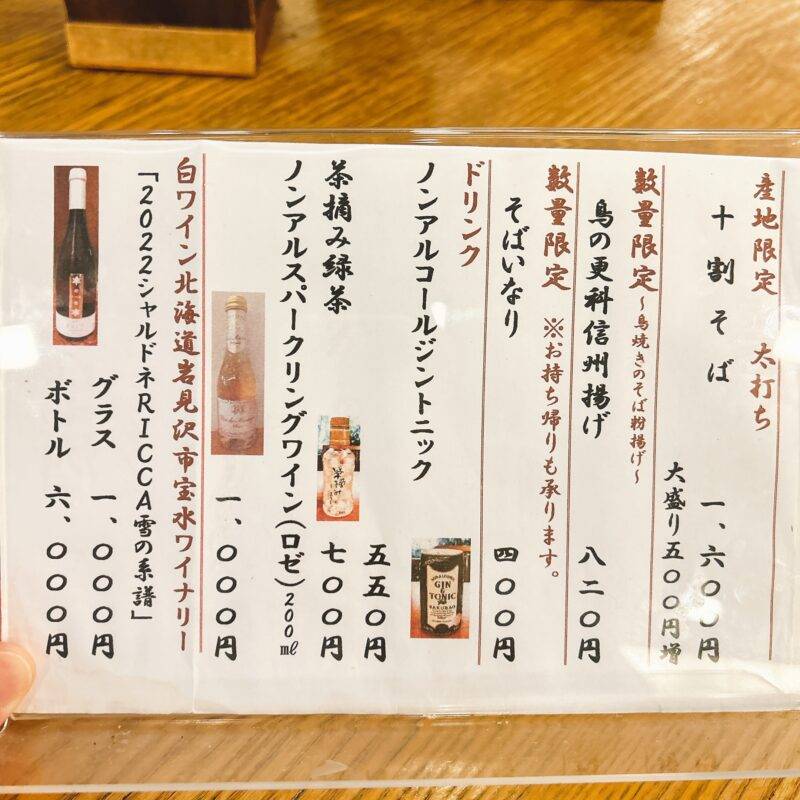 産地限定 太打ち
十割そば 一、六〇〇円
大盛り五〇〇円増
数量限定 ～鳥焼きのそば粉揚げ～
鳥の更科信州揚げ 八二〇円
数量限定 ※お持ち帰りも承ります。
そばいなり 四〇〇円
ドリンク
ノンアルコールジントニック
GIN & TONIC
五五〇円
茶摘み緑茶 七〇〇円
ノンアルスパークリングワイン(ロゼ)200㎖
一、〇〇〇円
白ワイン北海道岩見沢市宝水ワイナリー
「2022シャルドネRICCA雪の系譜」
グラス 一、〇〇〇円
ボトル 六、〇〇〇円